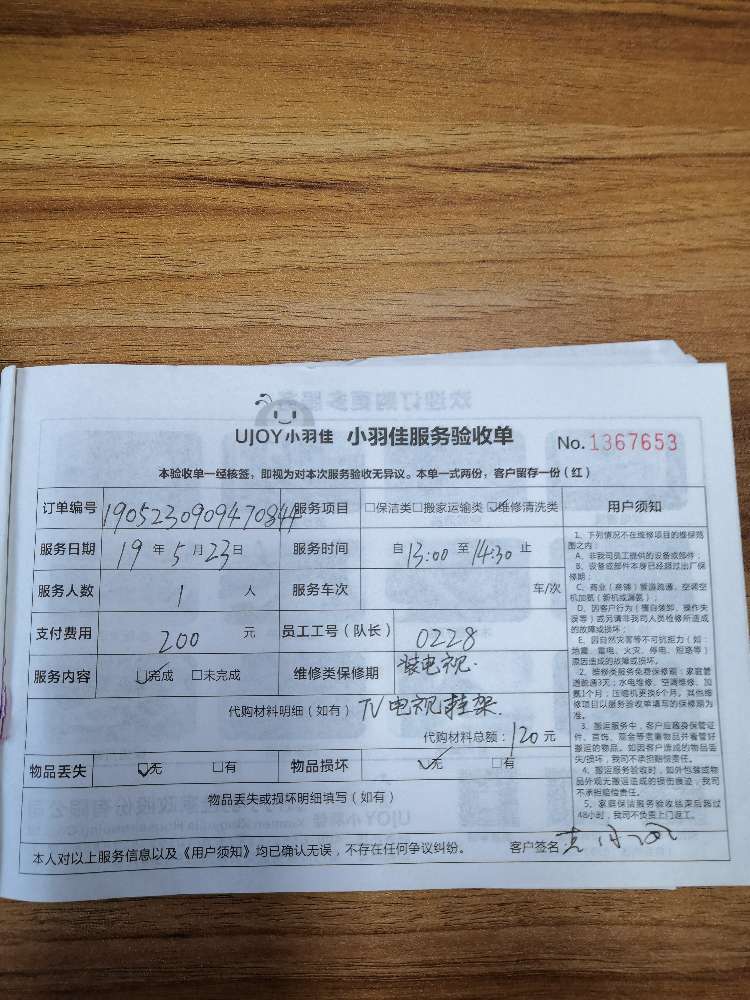 UJOY小羽佳 小羽佳服务验收单 No.1367653
本验收单一经核签，即视为对本次服务验收无异议。本单一式两份，客户留存一份（红）
订单编号 190523090947084 服务项目 □保洁类□搬家运输类☑维修清洗类 用户须知
服务日期 19年5月23日 服务时间 自13:00至14:30止
服务人数 1 人 服务车次 车/次
支付费用 200 元 员工工号（队长） 0228
服务内容 ☑完成 □未完成 维修类保修期 装电视.
代购材料明细（如有） TV电视挂架
代购材料总额：120元
物品丢失 ☑无 □有 物品损坏 ☑无 □有
物品丢失或损坏明细填写（如有）
本人对以上服务信息以及《用户须知》均已确认无误，不存在任何争议纠纷。 客户签名：
1、下列情况不在维修项目的维保范
围之内：
A、非我司员工提供的设备或部件；
B、设备或部件本身已经超过出厂保
修期；
C、商业（商铺）管道疏通、空调空
机加氨（新机或漏氨）；
D、因客户行为（擅自装卸、操作失
误等）或另请非我司人员检修所造成
的故障或损坏；
E、因自然灾害等不可抗拒力（如：
地震、雷电、火灾、停电、短路等）
原因造成的故障或损坏。
2、维修类服务免费保修期：家庭管
道疏通3天；水电维修、空调维修、加
氨1个月；压缩机更换6个月。其他维
修项目以服务验收单填写的保修期为
准。
3、搬运服务中，客户应随身保管证
件、首饰、现金等贵重物品并看管好
搬运的物品。如因客户造成的物品丢
失/损坏，我司不承担赔偿责任。
4、搬运服务验收时，如外包装或物
品外观无搬运造成的损伤痕迹，我司
不承担赔偿责任。
5、家庭保洁服务验收结束后超过
48小时，我司不负责上门返工。